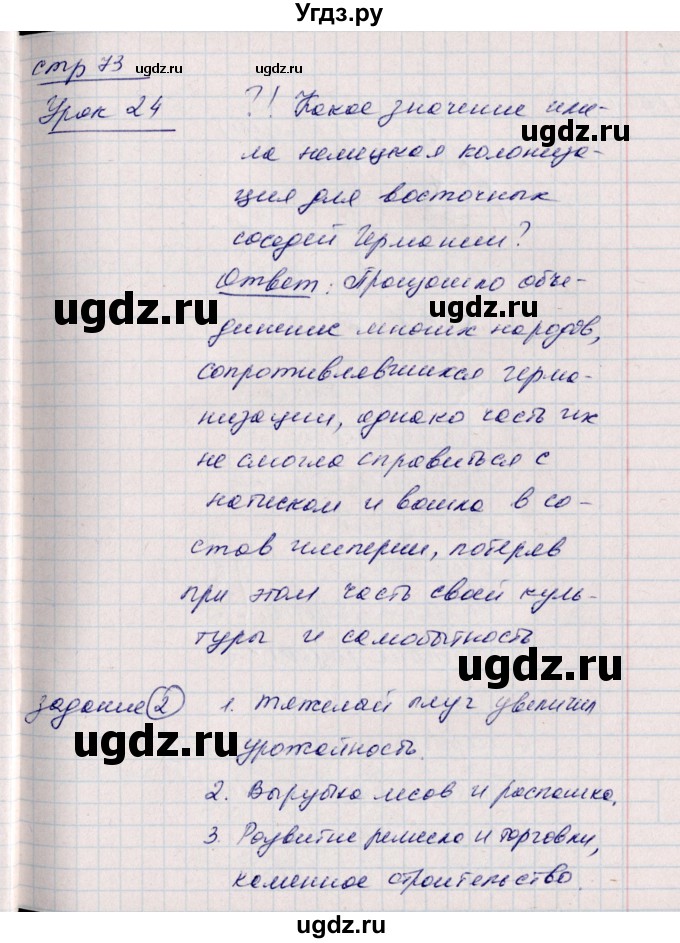 Угдз.ру
стр 73
ugdz.ru ugdz.ru
Урок 24
?! Какое значение име-
ugdz.ru
ла немецкая колониза-
ция для восточных
соседей Германии?
Ответ: Произошло объе-
ugdz.ru ugdz.ru
динение многих народов,
сопротивлявшихся герма-
низации, однако часть их
не смогла справиться с
натиском и вошла в со-
став империи, потеряв
при этом часть своей куль-
туры и самобытность
ugdz.ru
задание 2 1. Тяжелай плуг увеличил
ugdz.ru
урожайность.
2. Вырубка лесов и распашка.
3. Развитие ремесла и торговли,
каменное строительство.
ugdz.ru ugdz.ru
ugdz.ru